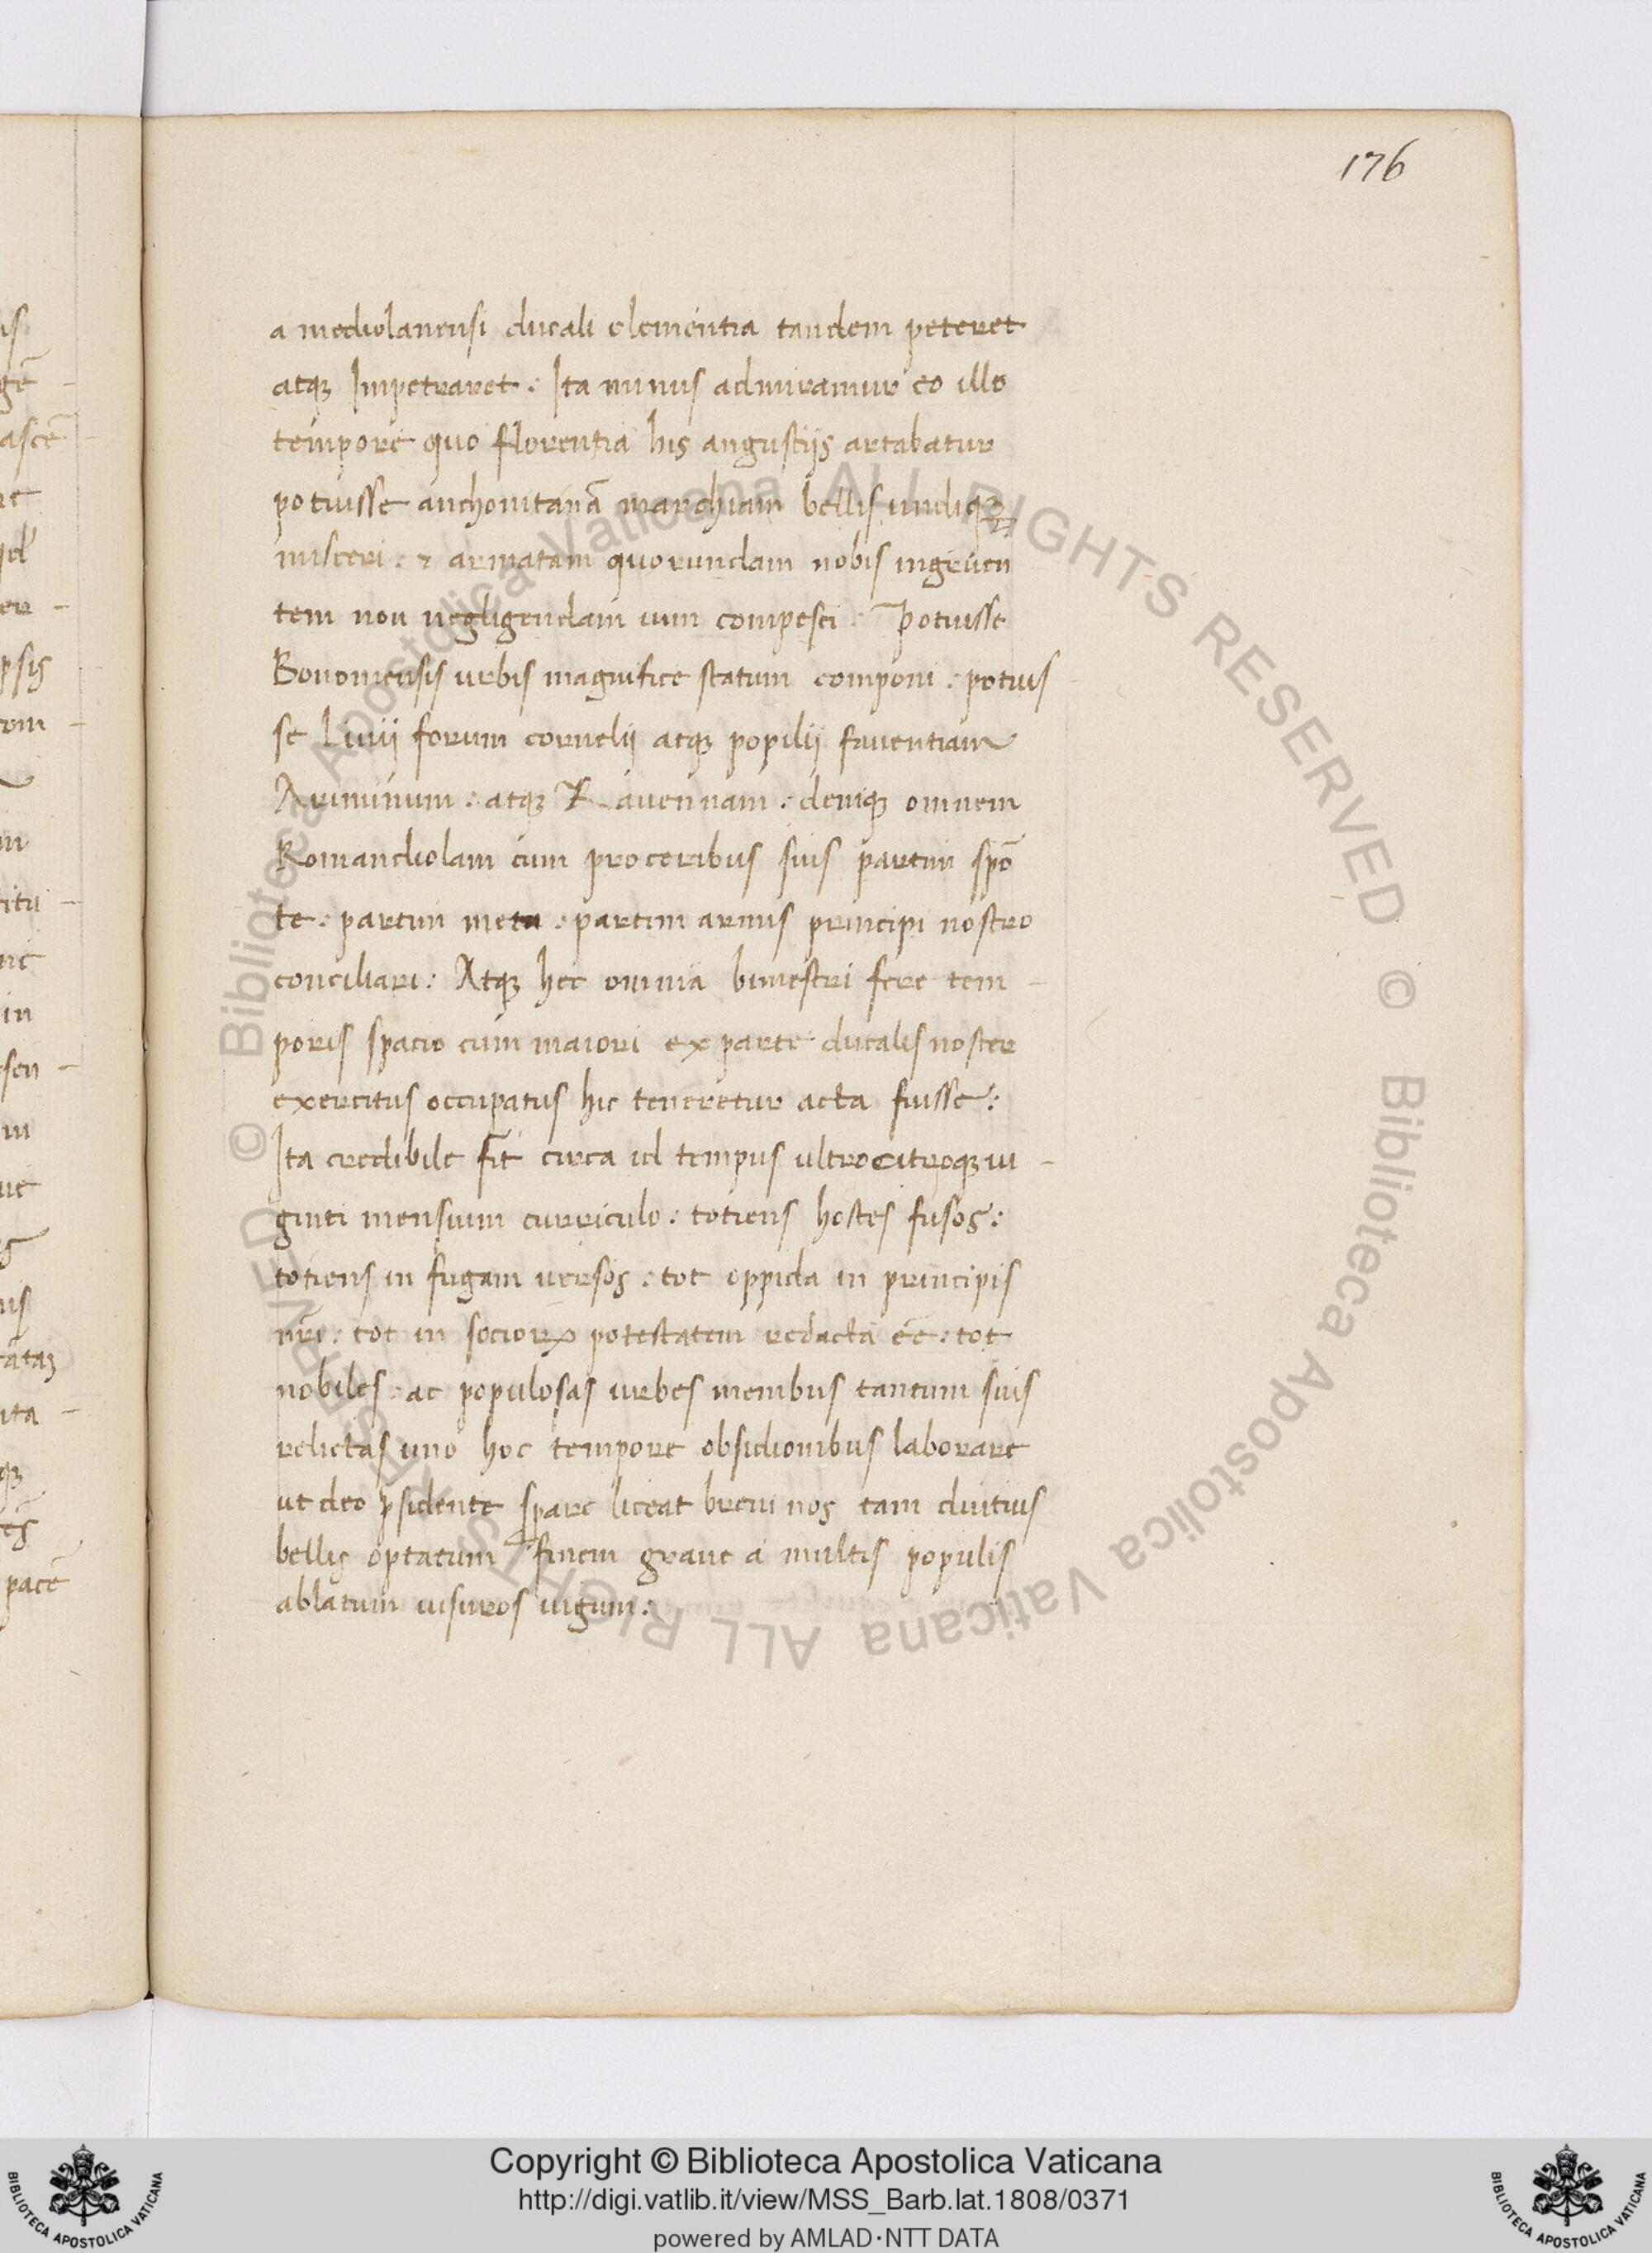 176
a mediolanensi ducali clementia tandem peteret
atqꝫ Impetraret : Ita minus admiramur eo illo
tempore quo florentia his angustijs artabatur
potuisse anchonitanā marchiam bellis undiqꝫ
misceri : ⁊ armatam quorundam nobis ingruen
tem non negligendam uim compesci : Potuisse
Bononiensis urbis magnifice statum componi : potuis
se Liuij forum cornelij atqꝫ popilij fauentiam
Ariminum : atqꝫ Rauennam : deniqꝫ omnem
Romandiolam cum proceribus suis partim spō
te : partim metu : partim armis principi nostro
conciliari : Atqꝫ hec omnia bimestri fere tem -
poris spacio cum maiori ex parte ducalis noster
exercitus occupatus hic teneretur acta fuisse :
Ita credibile fit circa id tempus ultrocitroqꝫ ui -
ginti mensium curriculo : totiens hostes fusos :
totiens in fugam uersos : tot oppida in principis
nr̄i : tot in socioꝝ potestatem redacta eē : tot
nobiles : ac populosas urbes menibus tantum suis
relictas uno hoc tempore obsidionibus laborare
ut deo p̄sidente sꝑare liceat breui nos tam diutius
bellis optatum finem graue a multis populis
ablatum uisuros iugum :
© Biblioteca Apostolica Vaticana ALL RIGHTS RESERVED © Biblioteca Apostolica Vaticana ALL RIGHTS RESERVED
Copyright © Biblioteca Apostolica Vaticana
http://digi.vatlib.it/view/MSS_Barb.lat.1808/0371
powered by AMLAD·NTT DATA
BIBLIOTECA APOSTOLICA VATICANA
BIBLIOTECA APOSTOLICA VATICANA